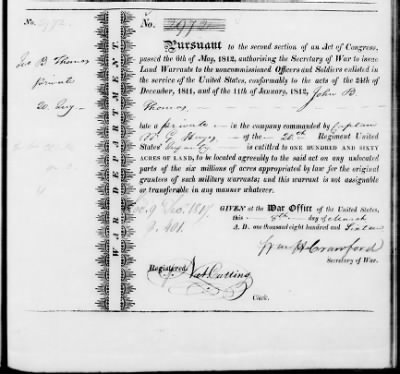 No. 2972
No. 2972
Jno B Thomas
Private
20. Infy
WAR DEPARTMENT.
Pursuant to the second section of an Act of Congress,
passed the 6th of May, 1812, authorising the Secretary of War to issue
Land Warrants to the noncommissioned Officers and Soldiers enlisted in
the service of the United States, conformably to the acts of the 24th of
December, 1811, and of the 11th of January, 1812, John B.
Thomas
late a private in the company commanded by Captain
of the 20th Regiment United
States Infantry is entitled to ONE HUNDRED AND SIXTY
ACRES OF LAND, to be located agreeably to the said act on any unlocated
parts of the six millions of acres appropriated by law for the original
grantees of such military warrants; and this warrant is not assignable
or transferable in any manner whatever.
GIVEN at the War Office of the United States,
this 8th day of March
A. D. one thousand eight hundred and Sixteen
Wm H Crawford
Secretary of War.
Registered, Nat Cutting
Clerk.